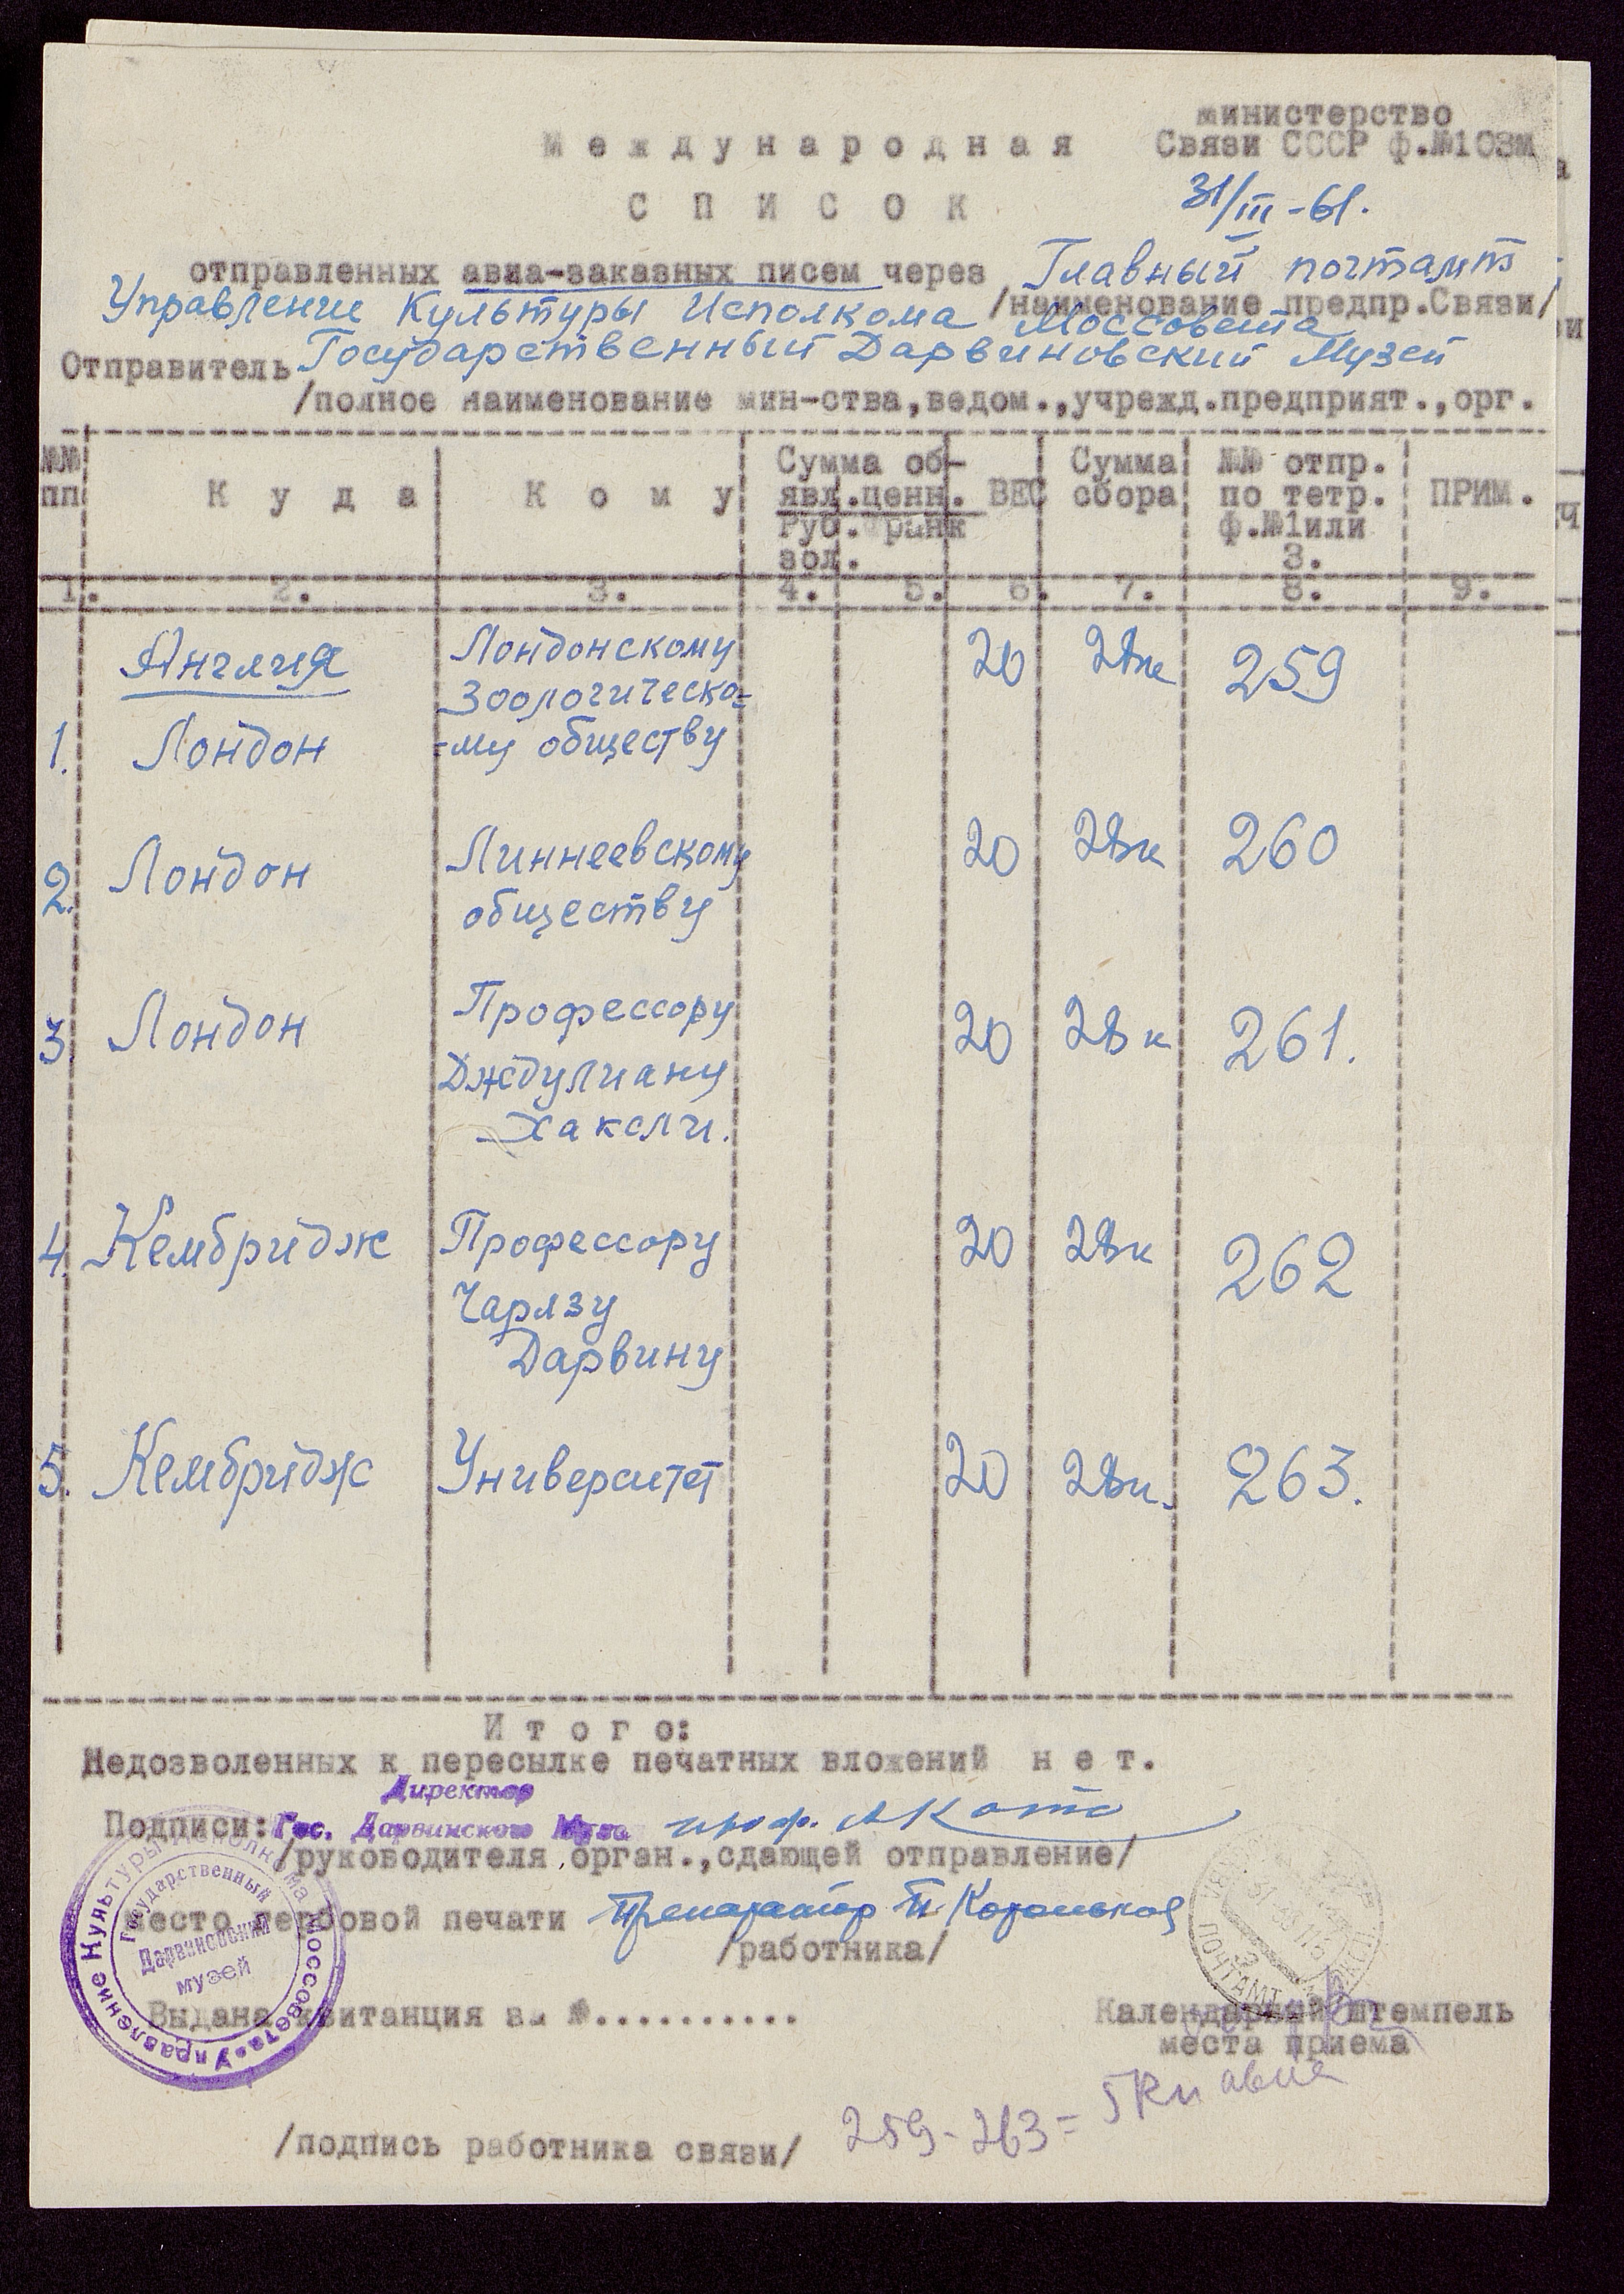 Министерство
Международная Связи СССР ф.№103м
СПИСОК 31/III-61.
отправленных авиа-заказных писем через Главный почтамт
/наименование предпр.Связи/
Управление Культуры Исполкома Моссовета
Отправитель Государственный Дарвиновский Музей
/полное наименование мин-ства,ведом.,учрежд.предприят.,орг.
№№ пп
Куда
Кому
Сумма об-явл.ценн.
Руб. франк зол.
ВЕС
Сумма сбора
№№ отпр. по тетр. ф.№1или 3.
ПРИМ.
1. 2. 3. 4. 5. 6. 7. 8. 9.
Англия Лондонскому 20 28к 259
Зоологическо-
1. Лондон -му обществу
2. Лондон Линнеевскому 20 28к 260
обществу
3 Лондон Профессору 20 28к 261.
Дждулиану
Хаксли.
4. Кембридж Профессору 20 28к 262
Чарлзу
Дарвину
5. Кембридж Университет 20 28к. 263.
Итого:
Недозволенных к пересылке печатных вложений нет.
Директор
Подписи: Гос. Дарвинского Музея проф. А Котс
/руководителя орган.,сдающей отправление/
место гербовой печати Препаратор П. Корольков
/работника/
Управление Культуры Исполкома Моссовета
Государственный
Дарвиновский
музей
ПОЧТАМТ
Выдана квитанция за №..........
Календарный штемпель
места приема
259-263= 5 авиа
/подпись работника связи/